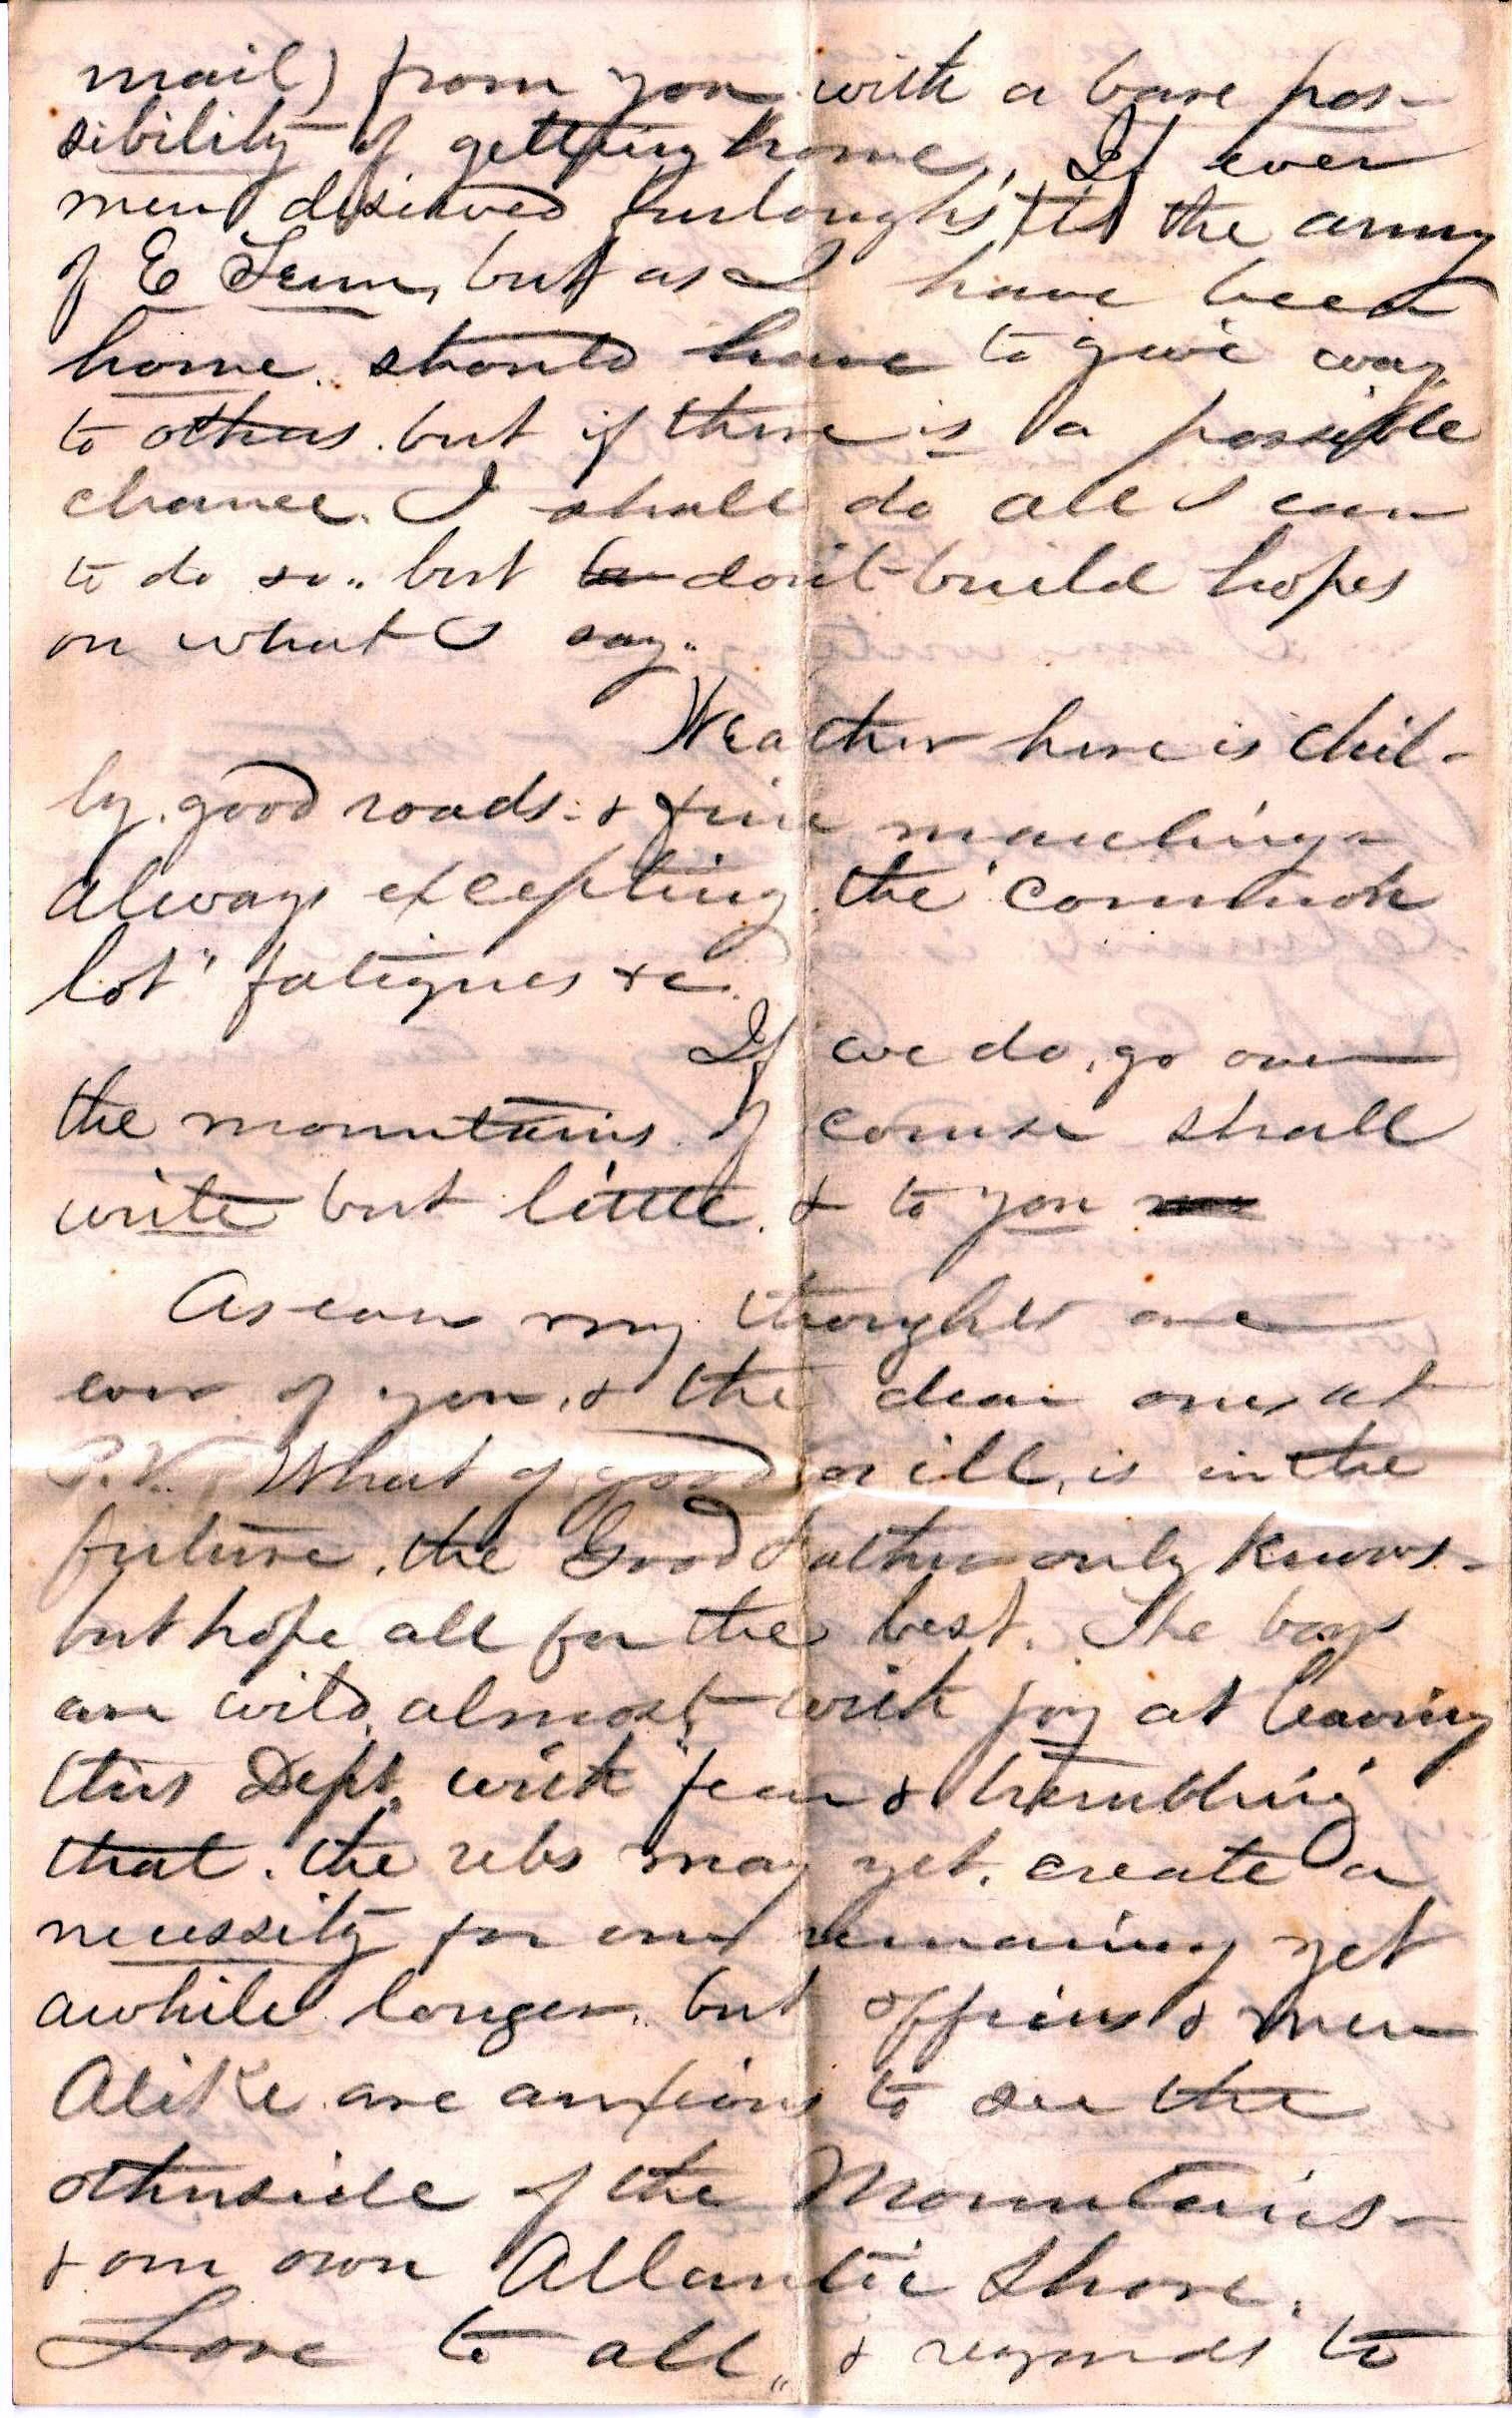 mail) from you with a bare pos-
sibility of getting home. If ever
men deserved furloughs, tis the army
of E Tenn, but as I have been
home. should have to give way
to others. but if there is a possible
chance. I shall do all I can
to do so.. but don't build hopes
on what I say..
Weather here is chil-
ly. good roads. & fine marching-
always excepting the "common
lot" fatigues &c.
If we do, go over
the mountains. of course shall
write but little. & to you
As ever my thoughts are
ever of you, & the dear ones at
P.V. What of good or ill, is in the
future. the Good Father only knows-
but hope all for the best. The boys
are wild, almost, with joy at leaving
this Dept. with "fear & trembling"
that. the rebs may yet. create a
necessity for our remaining yet
awhile longer.. but officers & men
Alike are anxious to see the
otherside of the Mountains-
& our own Atlantic Shore.
Love to all,, & regards to